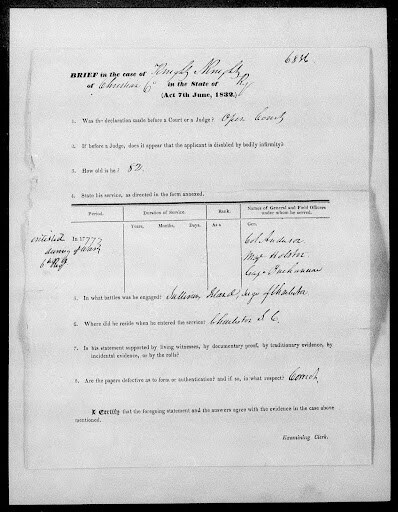 BRIEF in the case of Knight Knight
of Christian Co in the State of Ky
(Act 7th June, 1832,)
1. Was the declaration made before a Court or a Judge? Open Court
2. If before a Judge, does it appear that the applicant is disabled by bodily infirmity?
3. How old is he? 82
4. State his service, as directed in the form annexed.
Period. Duration of Service. Rank. Names of General and Field Officers under whom he served.
Years. Months. Days. As a Gen.
enlisted In 1777 Col Anderson
during of War
6th Regt
5. In what battles was he engaged? Sullivans Island, Siege of Charleston
6. Where did he reside when he entered the service? Charleston S. C.
7. Is his statement supported by living witnesses, by documentary proof, by traditionary evidence, by
incidental evidence, or by the rolls?
8. Are the papers defective as to form or authentication? and if so, in what respect? Correct.
I Certify that the foregoing statement and the answers agree with the evidence in the case above
mentioned.
Examining Clerk.